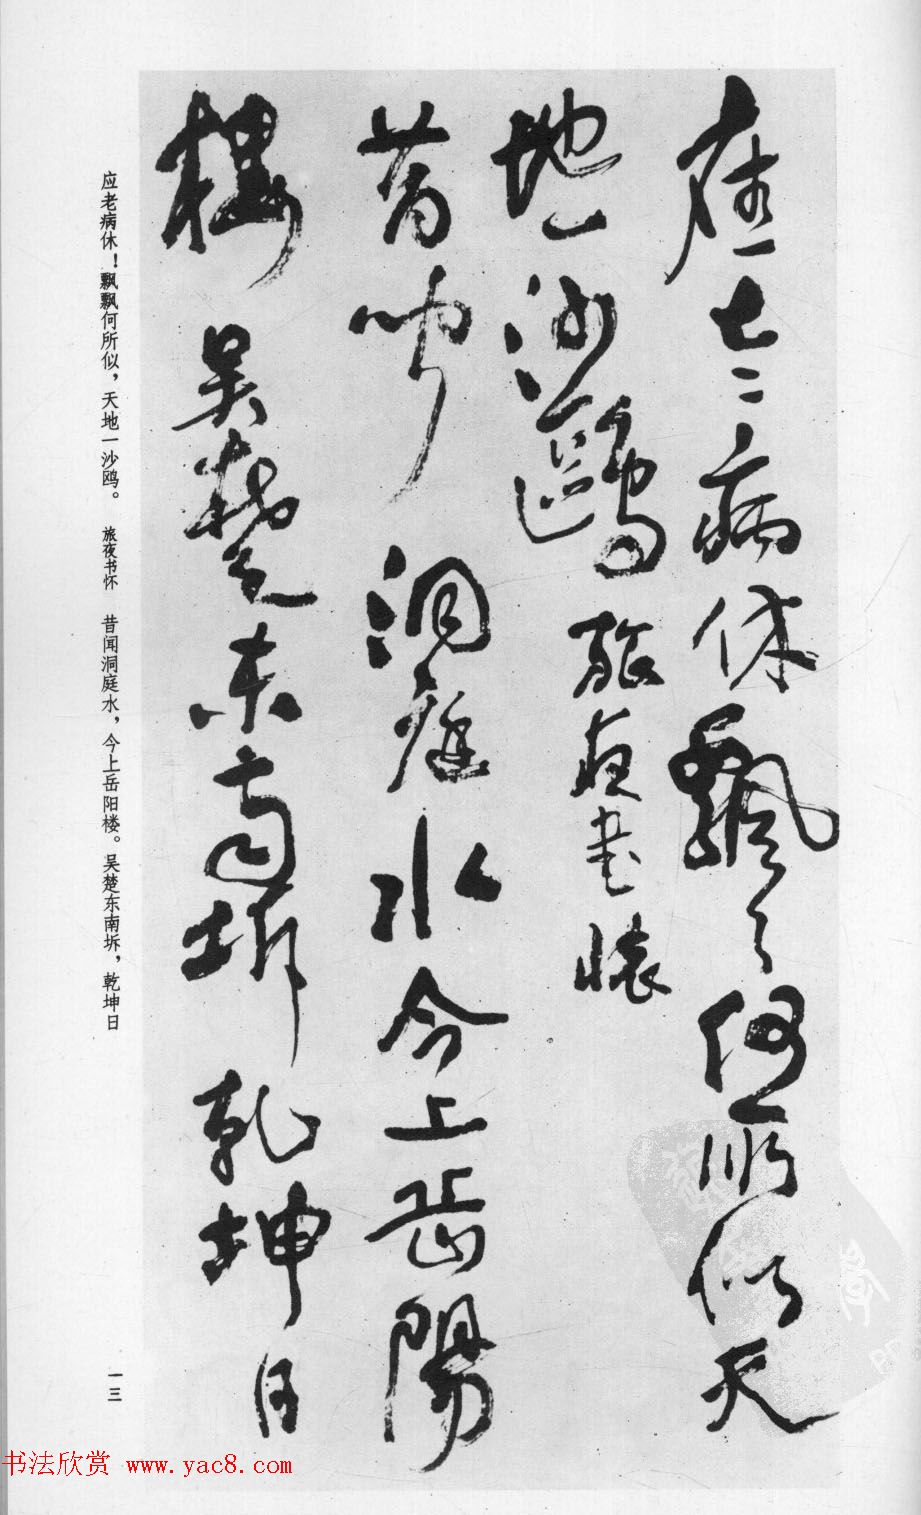 应老病休飘〻何所似天
地一沙鸥旅夜书怀
昔闻洞庭水今上岳陽
楼吴楚东南坼乾坤日
应老病休！飘飘何所似，天地一沙鸥。 旅夜书怀 昔闻洞庭水，今上岳阳楼。吴楚东南坼，乾坤日
一三
书法欣赏 www.yac8.com